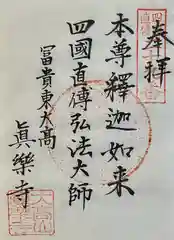 奉拝
本尊釋迦如来
四國直傳弘法大師
冨貴東大高
眞樂寺